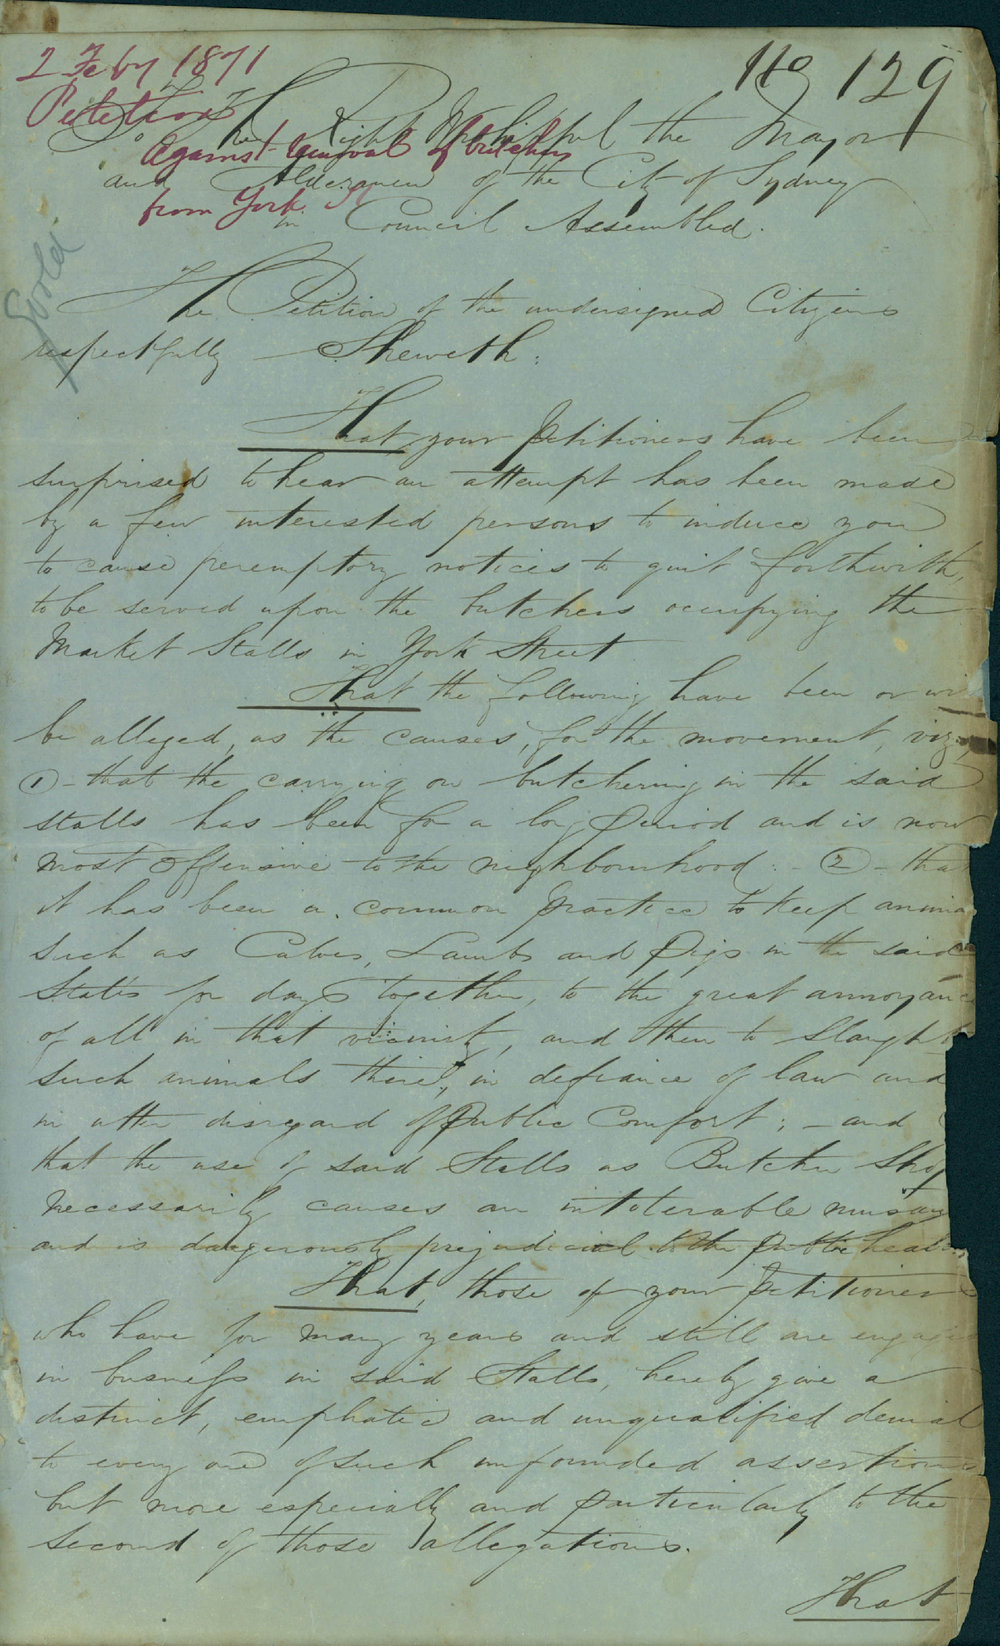 2 Feby 1871
No 129
Petition
To The Right Worshipful the Mayor
Against removal of butchers
and Aldermen of the City of Sydney
from York St
in Council Assembled.
The Petition of the undersigned Citizens
respectfully Sheweth:
That your petitioners have been
surprised to hear an attempt has been made
by a few interested persons to induce you
to cause peremptory notices to quit forthwith,
to be served upon the butchers occupying the
Market Stalls in York Street
That the following have been or wi
be alleged, as the causes, for the movement, viz,
1 - that the carrying on butchering in the said
stalls has been for a long period and is now
most offensive to the neighbourhood: - 2 - that
it has been a common practice to keep anima
such as Calves, Lambs and Pigs in the said
Stalls for days together, to the great annoyanc
of all in that vicinity, and then to slaught
such animals there, in defiance of law and
in utter disregard of public Comfort; - and
that the use of said Stalls as Butcher Shop
necessarily causes an intolerable nuisan
and is dangerously prejudicial to the public heal
That, those of your petitioners
who have for many years and still are engage
in business in said Stalls, hereby give a
distinct, emphatic and unqualified denial
to every one of such unfounded assertions
but more especially and particularly to the
second of those allegations.
That